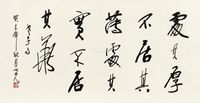 處其厚
不居其
薄處其
實不居
其華
老子句